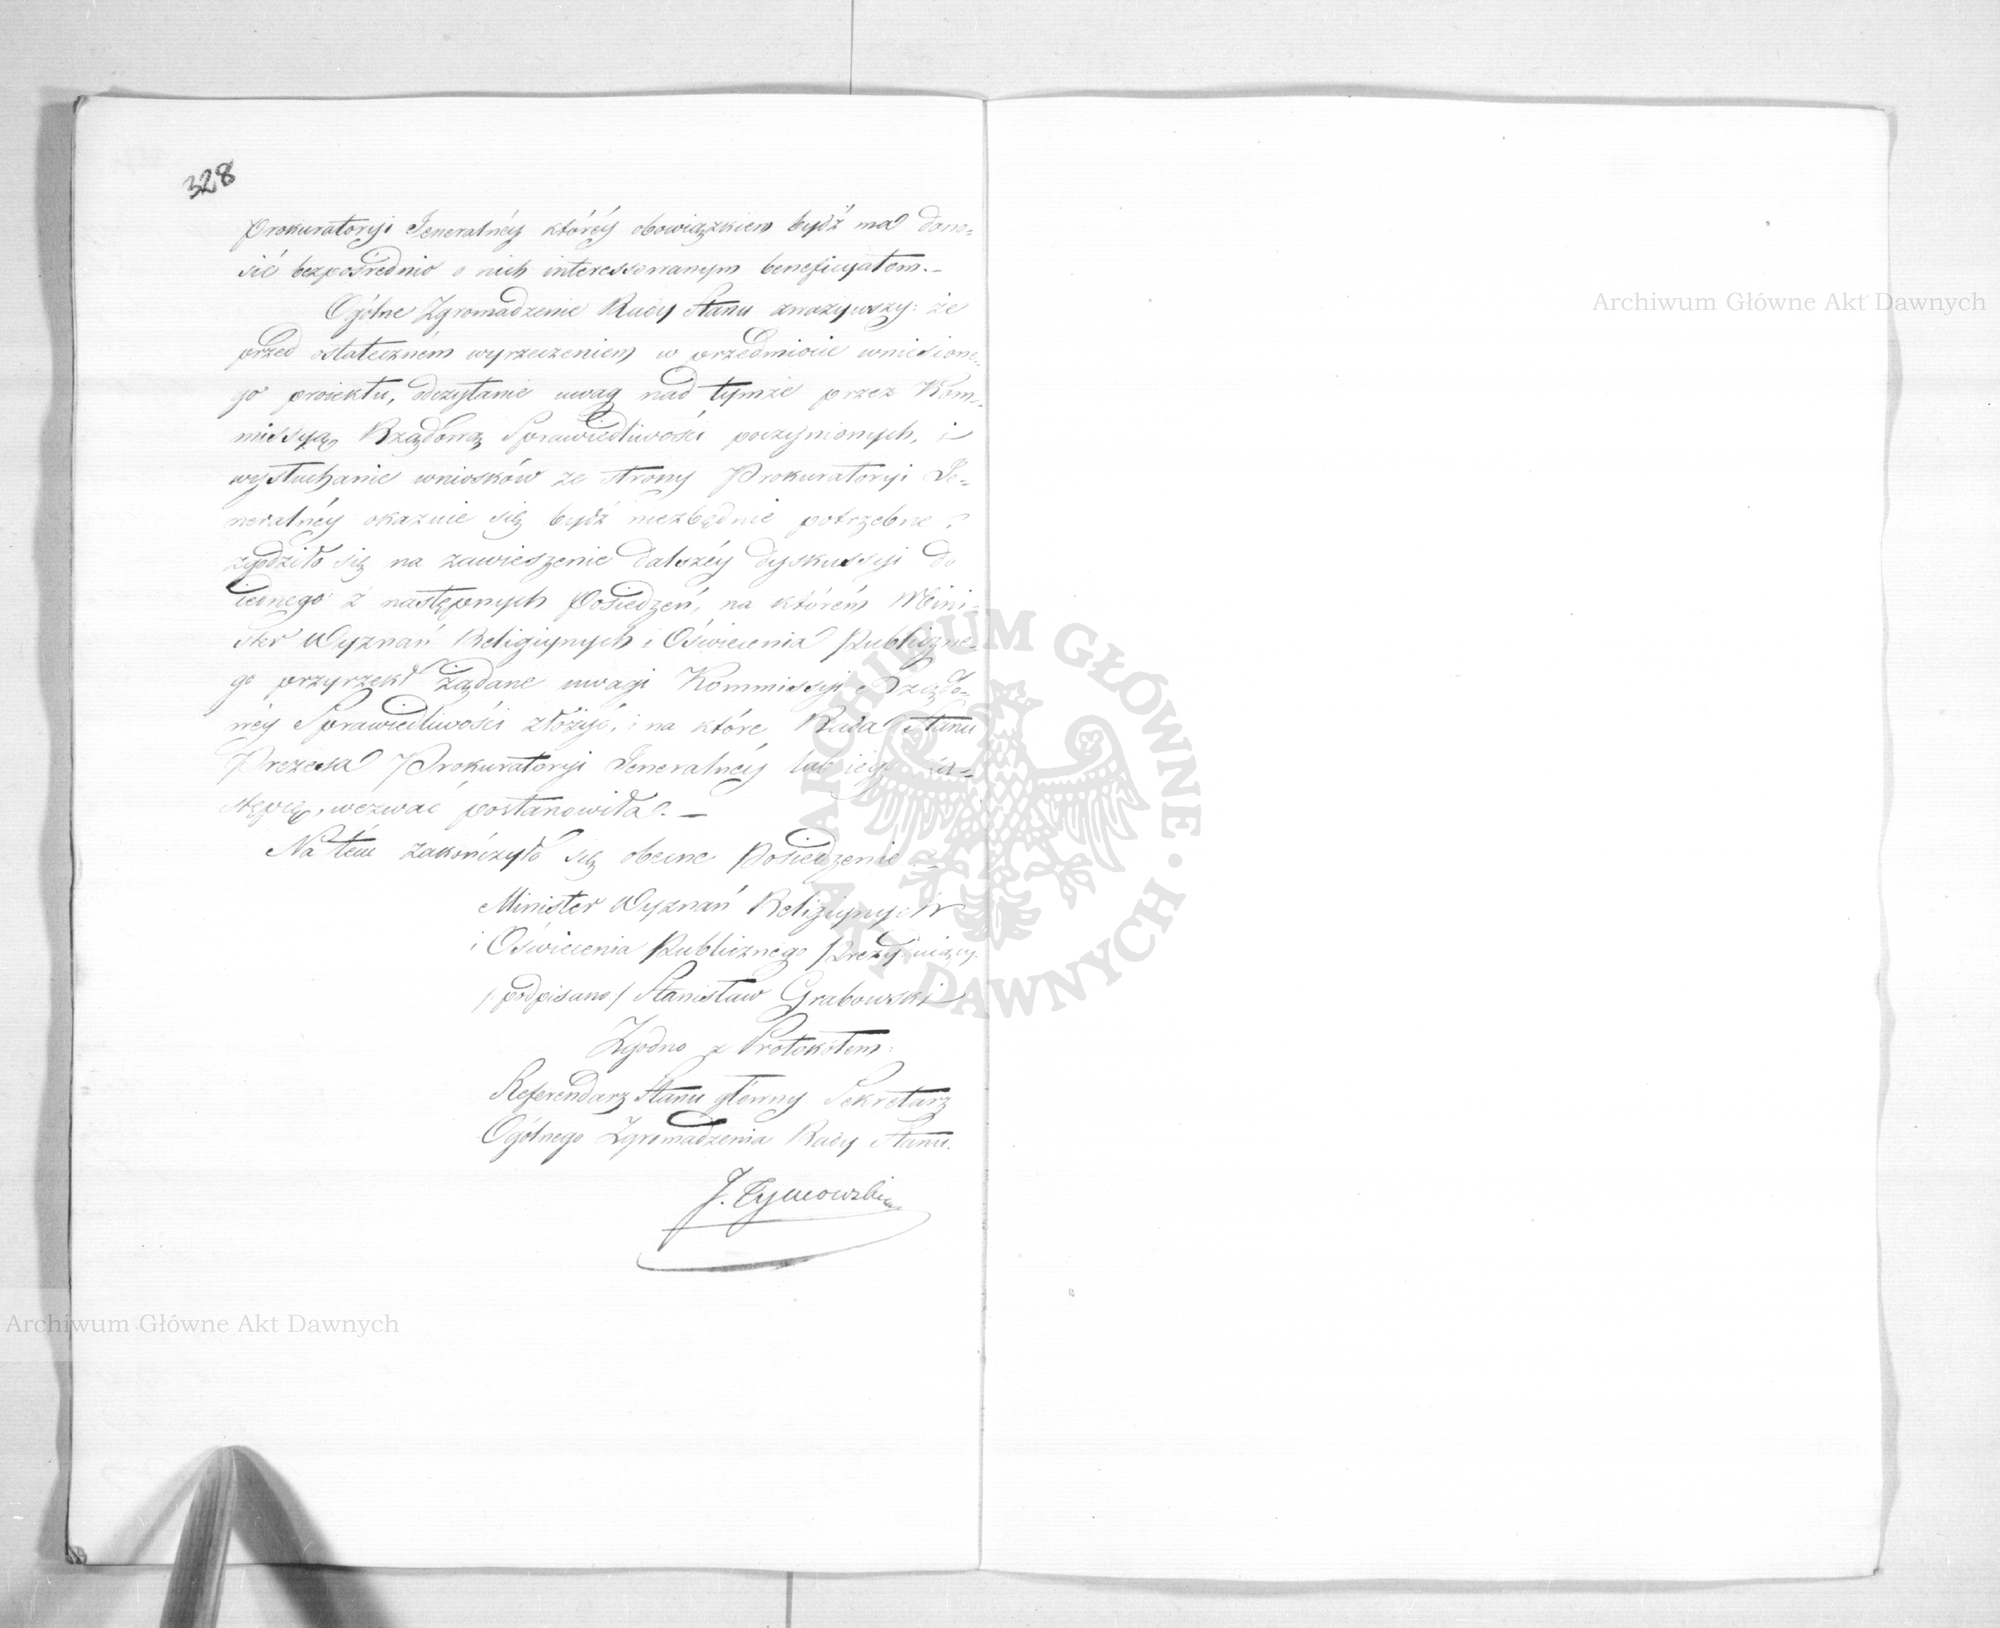 328
Prokuratoryi Jeneralnéy któréy obowiązkiem bydź ma dono-
sić bezpośrednio o nich interessowanym beneficyatom.—
Ogólne Zgromadzenie Rady Stanu zważywszy: że
przed ostatecznem wyrzeczeniem w przedmiocie wniesione-
go proiektu, odczytanie uwag nad tymże przez Kom-
missyą Rządową Sprawiedliwości poczynionych, i
wysłuchanie wniosków ze strony Prokuratoryi Je-
neralnéy okazuie się bydź niezbędnie potrzebne;
zgodziło się na zawieszenie dalszéy dyskussyi do
iednego z następnych Posiedzeń, na którém Mini-
ster Wyznań Religiynych i Oświecenia Publiczne-
go przyrzekł żądane uwagi Kommissyi Rządo-
wéy Sprawiedliwości złożyć, i na które Rada Stanu
Prezesa Prokuratoryi Jeneralnéy lub iego Za-
stępcę, wezwać postanowiła.—
Na tém zakończyło się obecne Posiedzenie.—
Minister Wyznań Religiynych
i Oświecenia Publicznego Prezyduiący.
/podpisano/ Stanisław Grabowski
Zgodno z Protokołem:
Referendarz Stanu główny Sekretarz
Ogólnego Zgromadzenia Rady Stanu.
J. Tymowski
Archiwum Główne Akt Dawnych
Archiwum Główne Akt Dawnych
ARCHIWUM GŁÓWNE AKT DAWNYCH